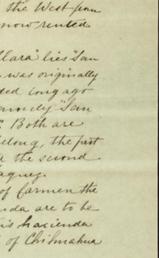 the West from
now rented
Clara" lies "San
was originally
ded long ago
"San
Both are
long, the past
the second
of Carmen the
nda are to be
is hacienda
of Chihuahua